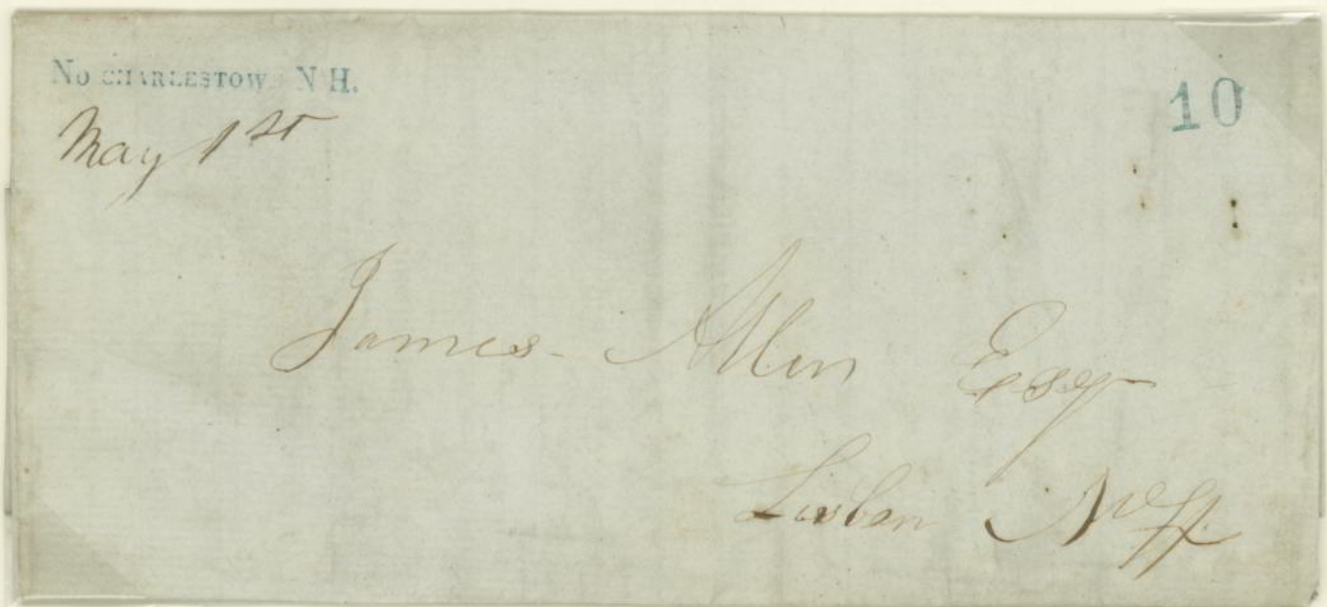 No CHARLESTOWN N.H.
10
May 1st
James Allen Esq
Lisbon N.H.